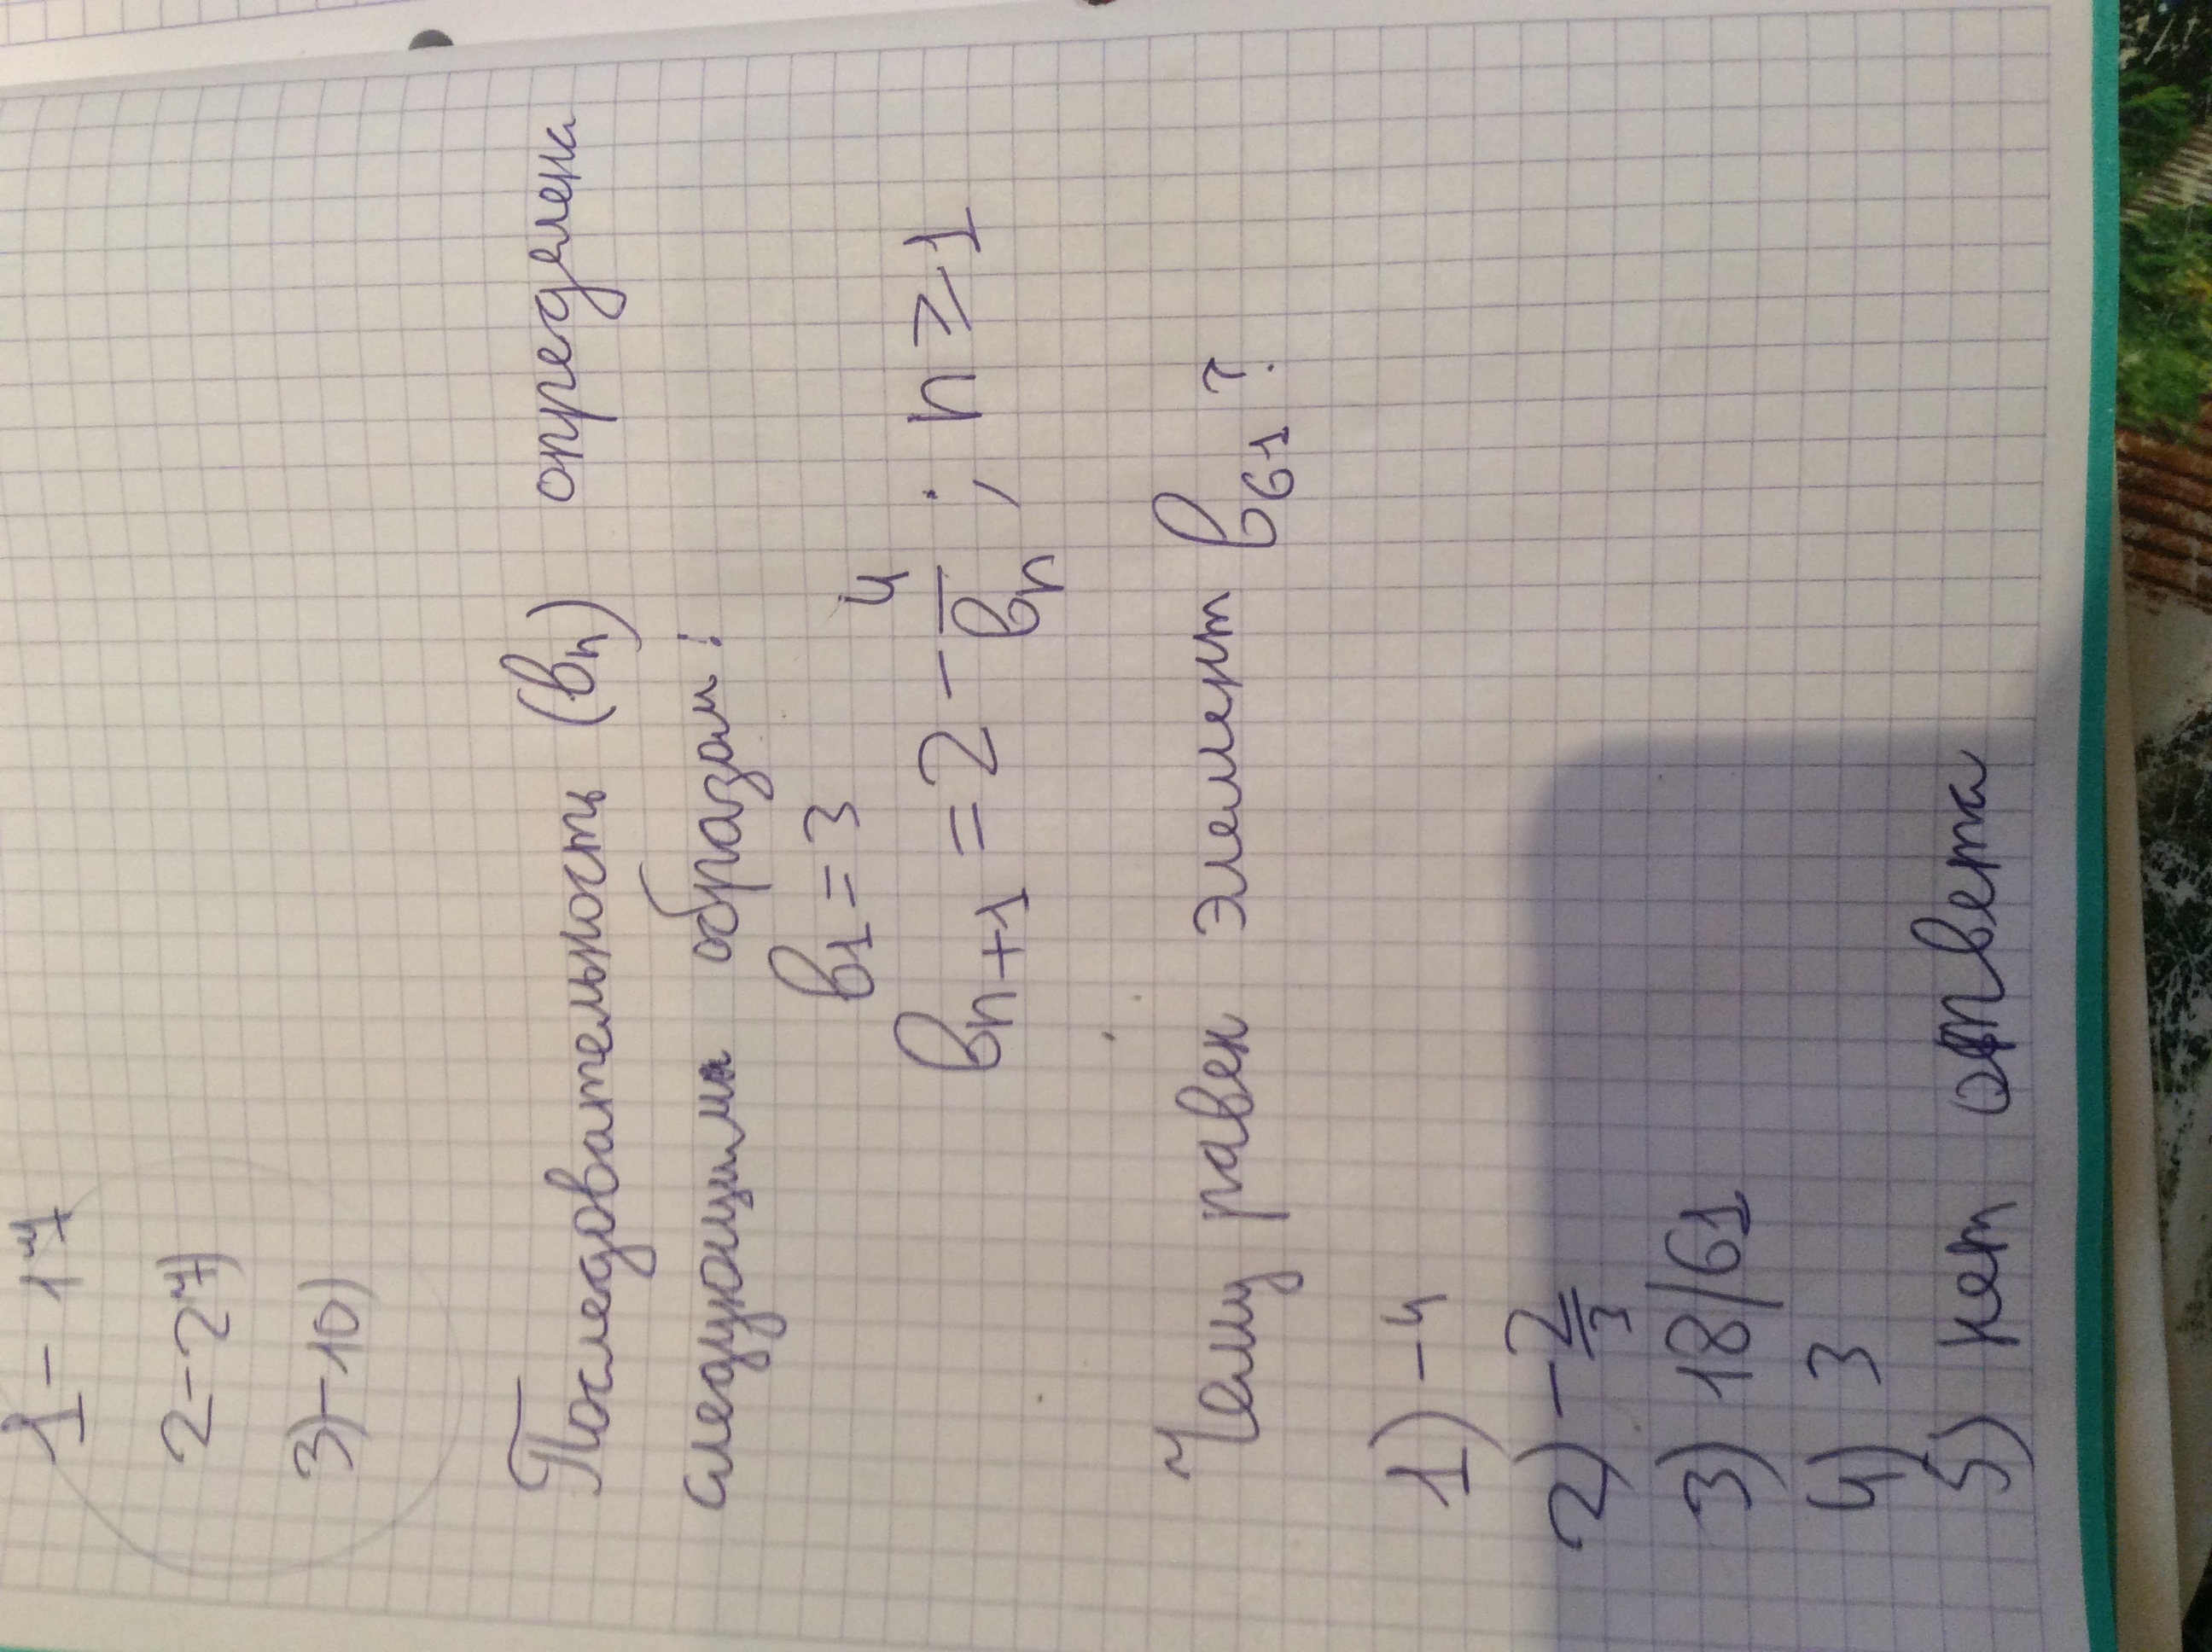 1 - 1
2 - 2
3) - 10)
Последовательность (вn) определена
следующим образом:
в1 = 3
вn+1 = 2 - 4/вn ; n ≥ 1
Чему равен элемент в61?
1) -4
2) - 2/3
3) 18/61
4) 3
5) нет ответа